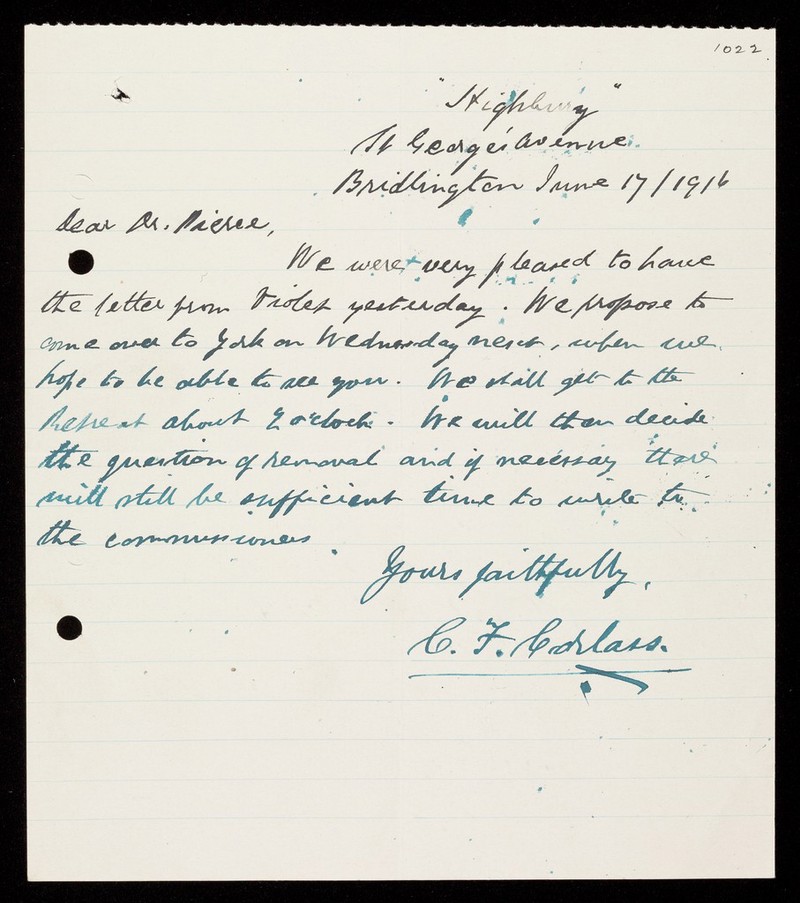 1022
"Highbury"
St George's Avenue
Bridlington June 17/1916
Dear Dr. Pierce,
We were very pleased to have
the letter from Violet yesterday. We propose to
come over to York on Wednesday next, when we
hope to be able to see you. We shall get to the
Retreat about 2 o'clock. We will then decide
the question of removal and if necessary there
will still be sufficient time to write to
the commissioners.
Yours faithfully,
C. F. Corlass.